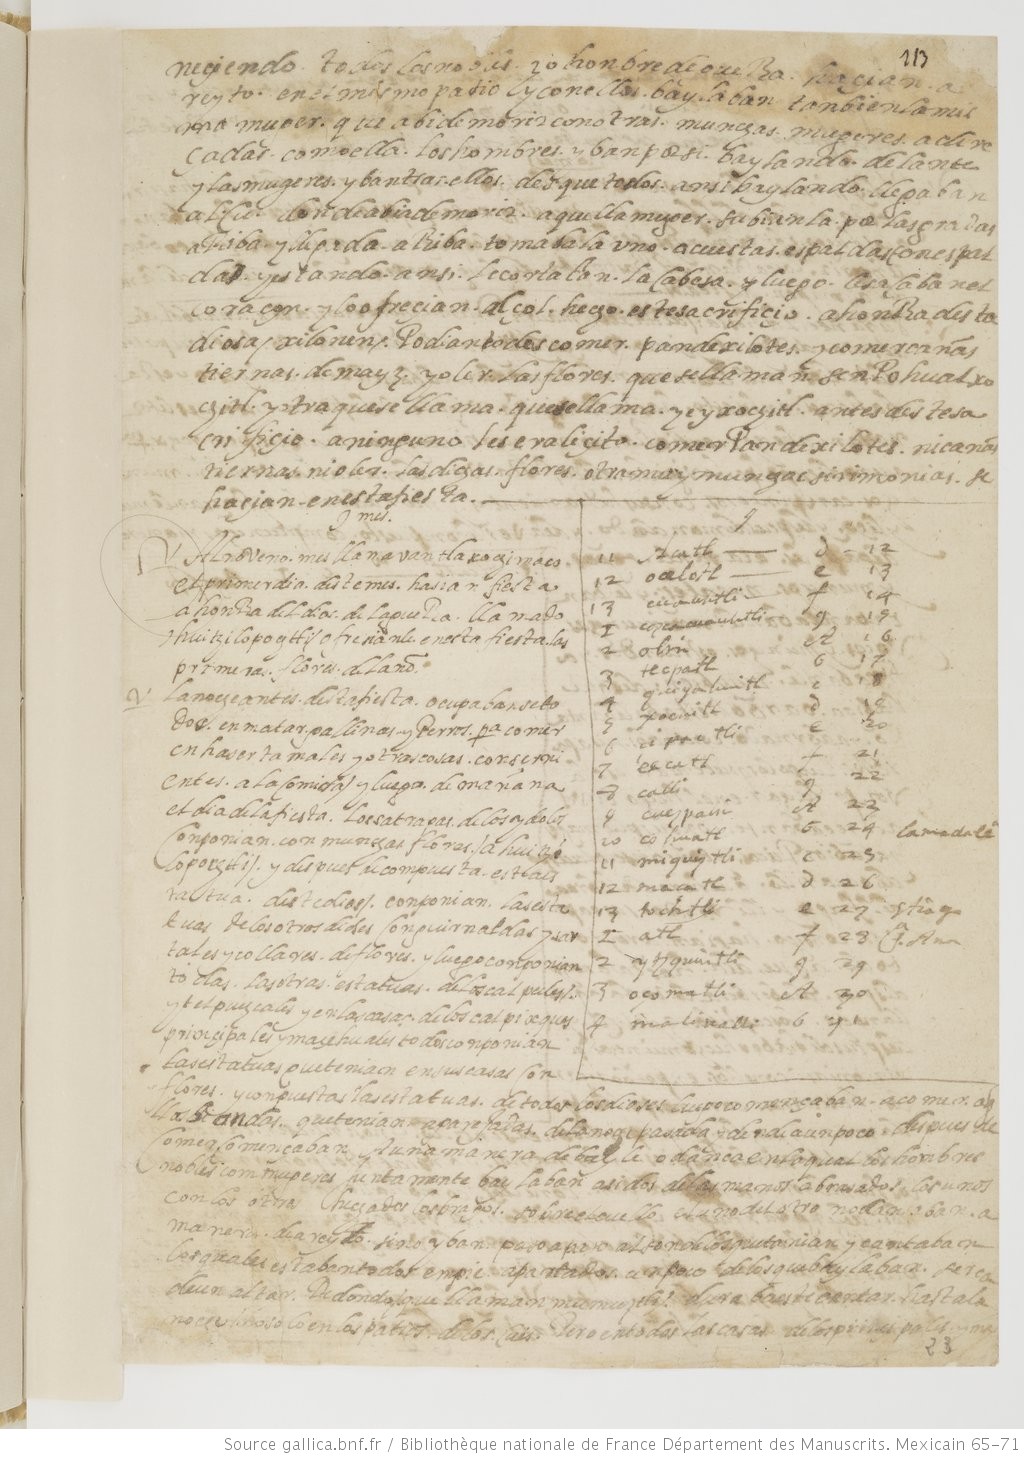 113
neciendo. todos los nobles. y los hombres de guerra. hazian. a
reyto. en el mismo patio. y con ellos. baylaban tambien la mis
ma muger. que abi de morir con otras. munchas mugeres. adere
çadas. como ella. los hombres. yban por si. baylando. delante
y las mugeres. yban tras ellos. desque todos. ansi baylando. llegaban
al cu. donde abia de morir. aquella muger. subianla. por las gradas
arriba. y llegada. arriba. tomabala uno. acuestas. espaldas con espal
das. y estando. ansi. le cortaban. la cabesa. y luego. le sacaban el
coraçon. y lo ofrecian. al sol. hecho. este sacrificio. a honrra desta
diosa xilonen. Podian todos comer. pan de xilotes. y comer cañas
tiernas. de mayz. y oler. las flores. que se llaman. senpohualxo
chitl. y otra que se llama. que se llama. yeyxochitl. antes deste sa
crificio. a ninguno les era licito. comer Pan de xilotes. ni cañas
tiernas. ni oler. las dichas. flores. otras muy munchas sirimonias. se
hazian. en esta fiesta.
9 mes.
1 Al noveno. mes llamavan tlaxochimaco
el primer dia. deste mes. hasian fiesta
a honrra del dios. de la guerra. llamado
huitzilopochtli ofresianle. en esta fiesta. las
primeras. flores. del año.
2 La noche antes. desta fiesta. ocupabanse to
dos. en matar. gallinas. y Perros. pa comer
en haser tamales y otras cosas. conserni
entes. a la comida y luego. de mañana
el dia de la fiesta. los satrapas. de los ydolos
conponian. con munchas flores. a huitzi
lopochtli. y despues de compuesta. esta es
tatua. deste dios. conponian. las esta
tuas de los otros dioses con guirnaldas y sar
tales y collares. de flores. y luego conponian
todas. las otras. estatuas. de los calpules.
y telpuscales y en las casas. de los calpixques
principales y maçehuales todos conponian
las estatuas que tenian en sus casas con
flores. y conpuestas las estatuas. de todos los dioses luego començaban. a comer. aque
llas viandas. que tenian aparejadas. de la noche pasada y dende a un poco. despues de
comer. començaban. una manera de baile o dança en la qual los hombres
nobles con mugeres juntamente baylaban asidos de las manos y abrasados. los unos
con los otros hechados los braços. sobre el cuello el uno del otro no dançaban. a
manera. de areyto. sino yban. paso a paso al son de los que tañian y cantaban
los quales estaban todos en pie. apartados. un poco de los que baylaban. serca
de un altar. Redondo. que llaman mumuztli. durabaeste cantar. hasta la
noche no solo en los patios. de los cues. Pero en todas las casas de los principales y ma
9
11 acatl — d - 12
12 ocelotl — e 13
13 cuauhtli — f 14
1 cozcacuauhtli g 15
2 olin A 16
3 tecpatl b 17
4 quiyahuitl c 18
5 xochitl d 19
6 cipactli e 20
7 ececatl f 21
8 calli g 22
9 cuespalin A 23
10 cohuatl b 24 la madalena
11 miquiztli c 25
12 macatl d 26
13 tochtli e 27 stiag
1 atl f 28 S. Ana
2 ytzquintli g 29
3 ocomatli A 30
4 malinalli b 31
23
Source gallica.bnf.fr / Bibliothèque nationale de France Département des Manuscrits. Mexicain 65-71